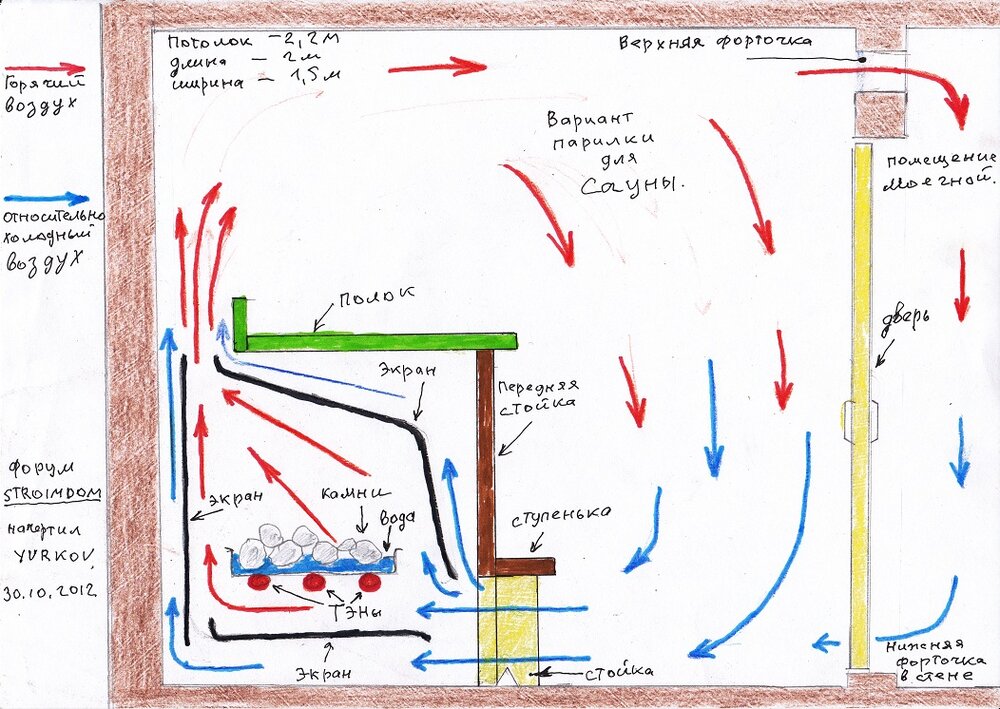 Горячий
воздух
относительно
холодный
воздух
Форум
STROIMDOM
начертил
YURKOV,
30.10.2012
Потолок – 2,2 м
длина – 2 м
ширина – 1,5 м
Верхняя форточка
Вариант
парилки
для
Сауны.
помещение
моечной.
полок
дверь
Экран
Передняя
стойка
экран
камни
вода
ступенька
ТЭНы
Экран
стойка
Нижняя
форточка
в стене